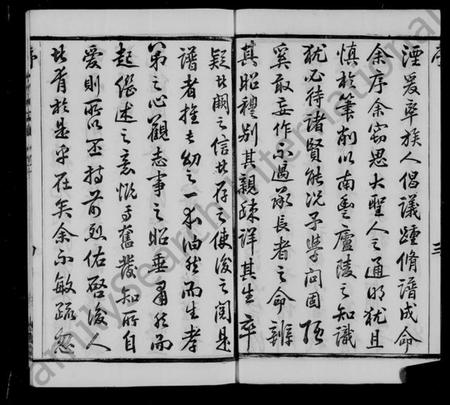 序
三
湮爰率族人倡議踵脩譜成命
余序余竊思大聖人之通明猶且
慎於筆削以南豐廬陵之知識
猶必待諸賢能况予學問固陋
奚敢妄作不過承長者之命辨
其昭禮别其親疎詳其生卒
疑者闕之信者存之使後之閲是
譜者推長幼之一本油然而生孝
弟之心觀志事之昭垂肅然而
起繼述之意慨焉奮發知所自
愛則所以丕持前烈佑啓後人
者胥於是乎在矣余不敏疏忽
序
FamilySearch International